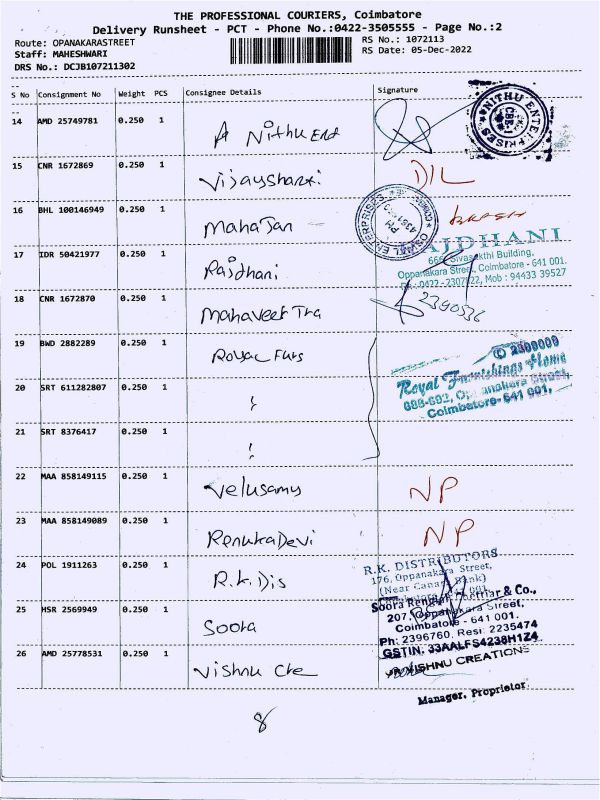 THE PROFESSIONAL COURIERS, Coimbatore
Delivery Runsheet - PCT - Phone No.:0422-3505555 - Page No.:2
Route: OPANAKARASTREET RS No.: 1072113
Staff: MAHESHWARI RS Date: 05-Dec-2022
DRS No.: DCJB107211302
S No Consignment No Weight PCS Consignee Details Signature
14 AMD 25749781 0.250 1 A Nithu Ent
NITHU ENTERPRISES CBE-1
15 CNR 1672869 0.250 1 Vijayshanti DIL
16 BHL 100146949 0.250 1 Mahajan
OSWAL ENTERPRISES PH
17 IDR 50421977 0.250 1 Rajdhani
RAJDHANI
666, Sivasakthi Building,
Oppanakara Street, Coimbatore - 641 001.
Ph.: 0422-2307622, Mob : 94433 39527
18 CNR 1672870 0.250 1 Mahaveer Tra 2390536
19 BWD 2882289 0.250 1 Royal Furs
2300009
Royal Furnishings Home
Oppanakara Street,
Coimbatore- 641 001.
20 SRT 611282807 0.250 1
21 SRT 8376417 0.250 1
22 MAA 858149115 0.250 1 Velusamy NP
23 MAA 858149089 0.250 1 Renuka Devi NP
24 POL 1911263 0.250 1 R.K. Dis
R.K. DISTRIBUTORS
176, Oppanakara Street,
(Near Canara Bank)
25 HSR 2569949 0.250 1 Soora
Soora Rengiah Chettiar & Co.,
207, Oppanakara Street,
Coimbatore - 641 001.
Ph: 2396760, Resi: 2235474
GSTIN: 33AALFS4238H1Z4
26 AMD 25778531 0.250 1 Vishnu Cre
VISHNU CREATIONS
Manager, Proprietor
8